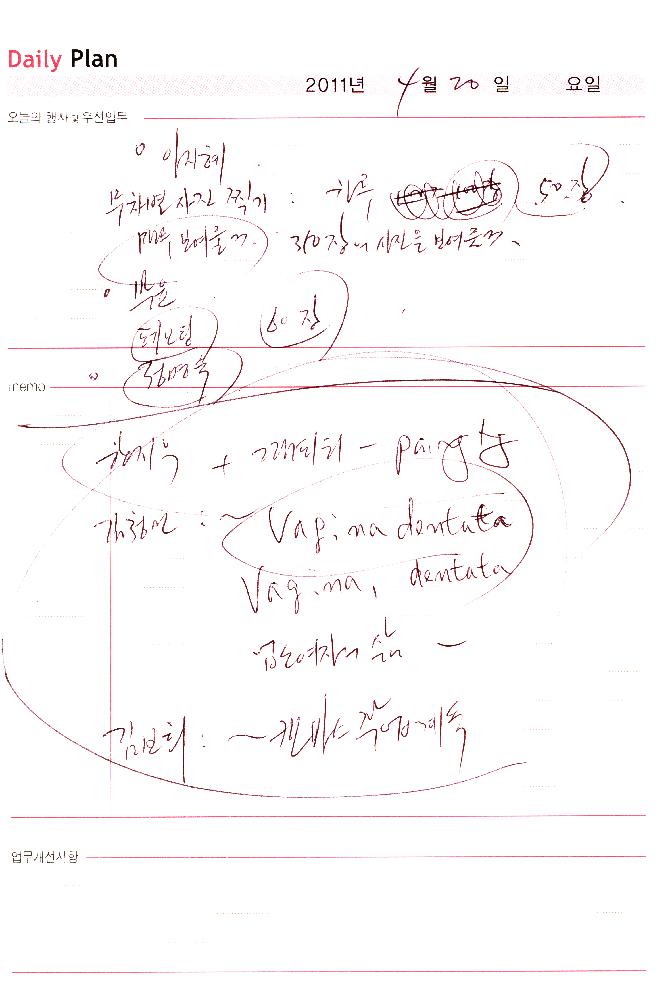 Daily Plan
2011년 4월 20일 요일
오늘의 행사 및 우선업무
이지혜
무차별 사진 찍기 : 하루 50장
매주 보여줄것. 350장의 사진을 보여줄것.
60장
memo
+ 그래피티 - painting
: ~ Vagina dentata
Vagina, dentata
없는 여자의 삶 ~
김보희 : ~ 캔버스 작업 계속
업무개선사항